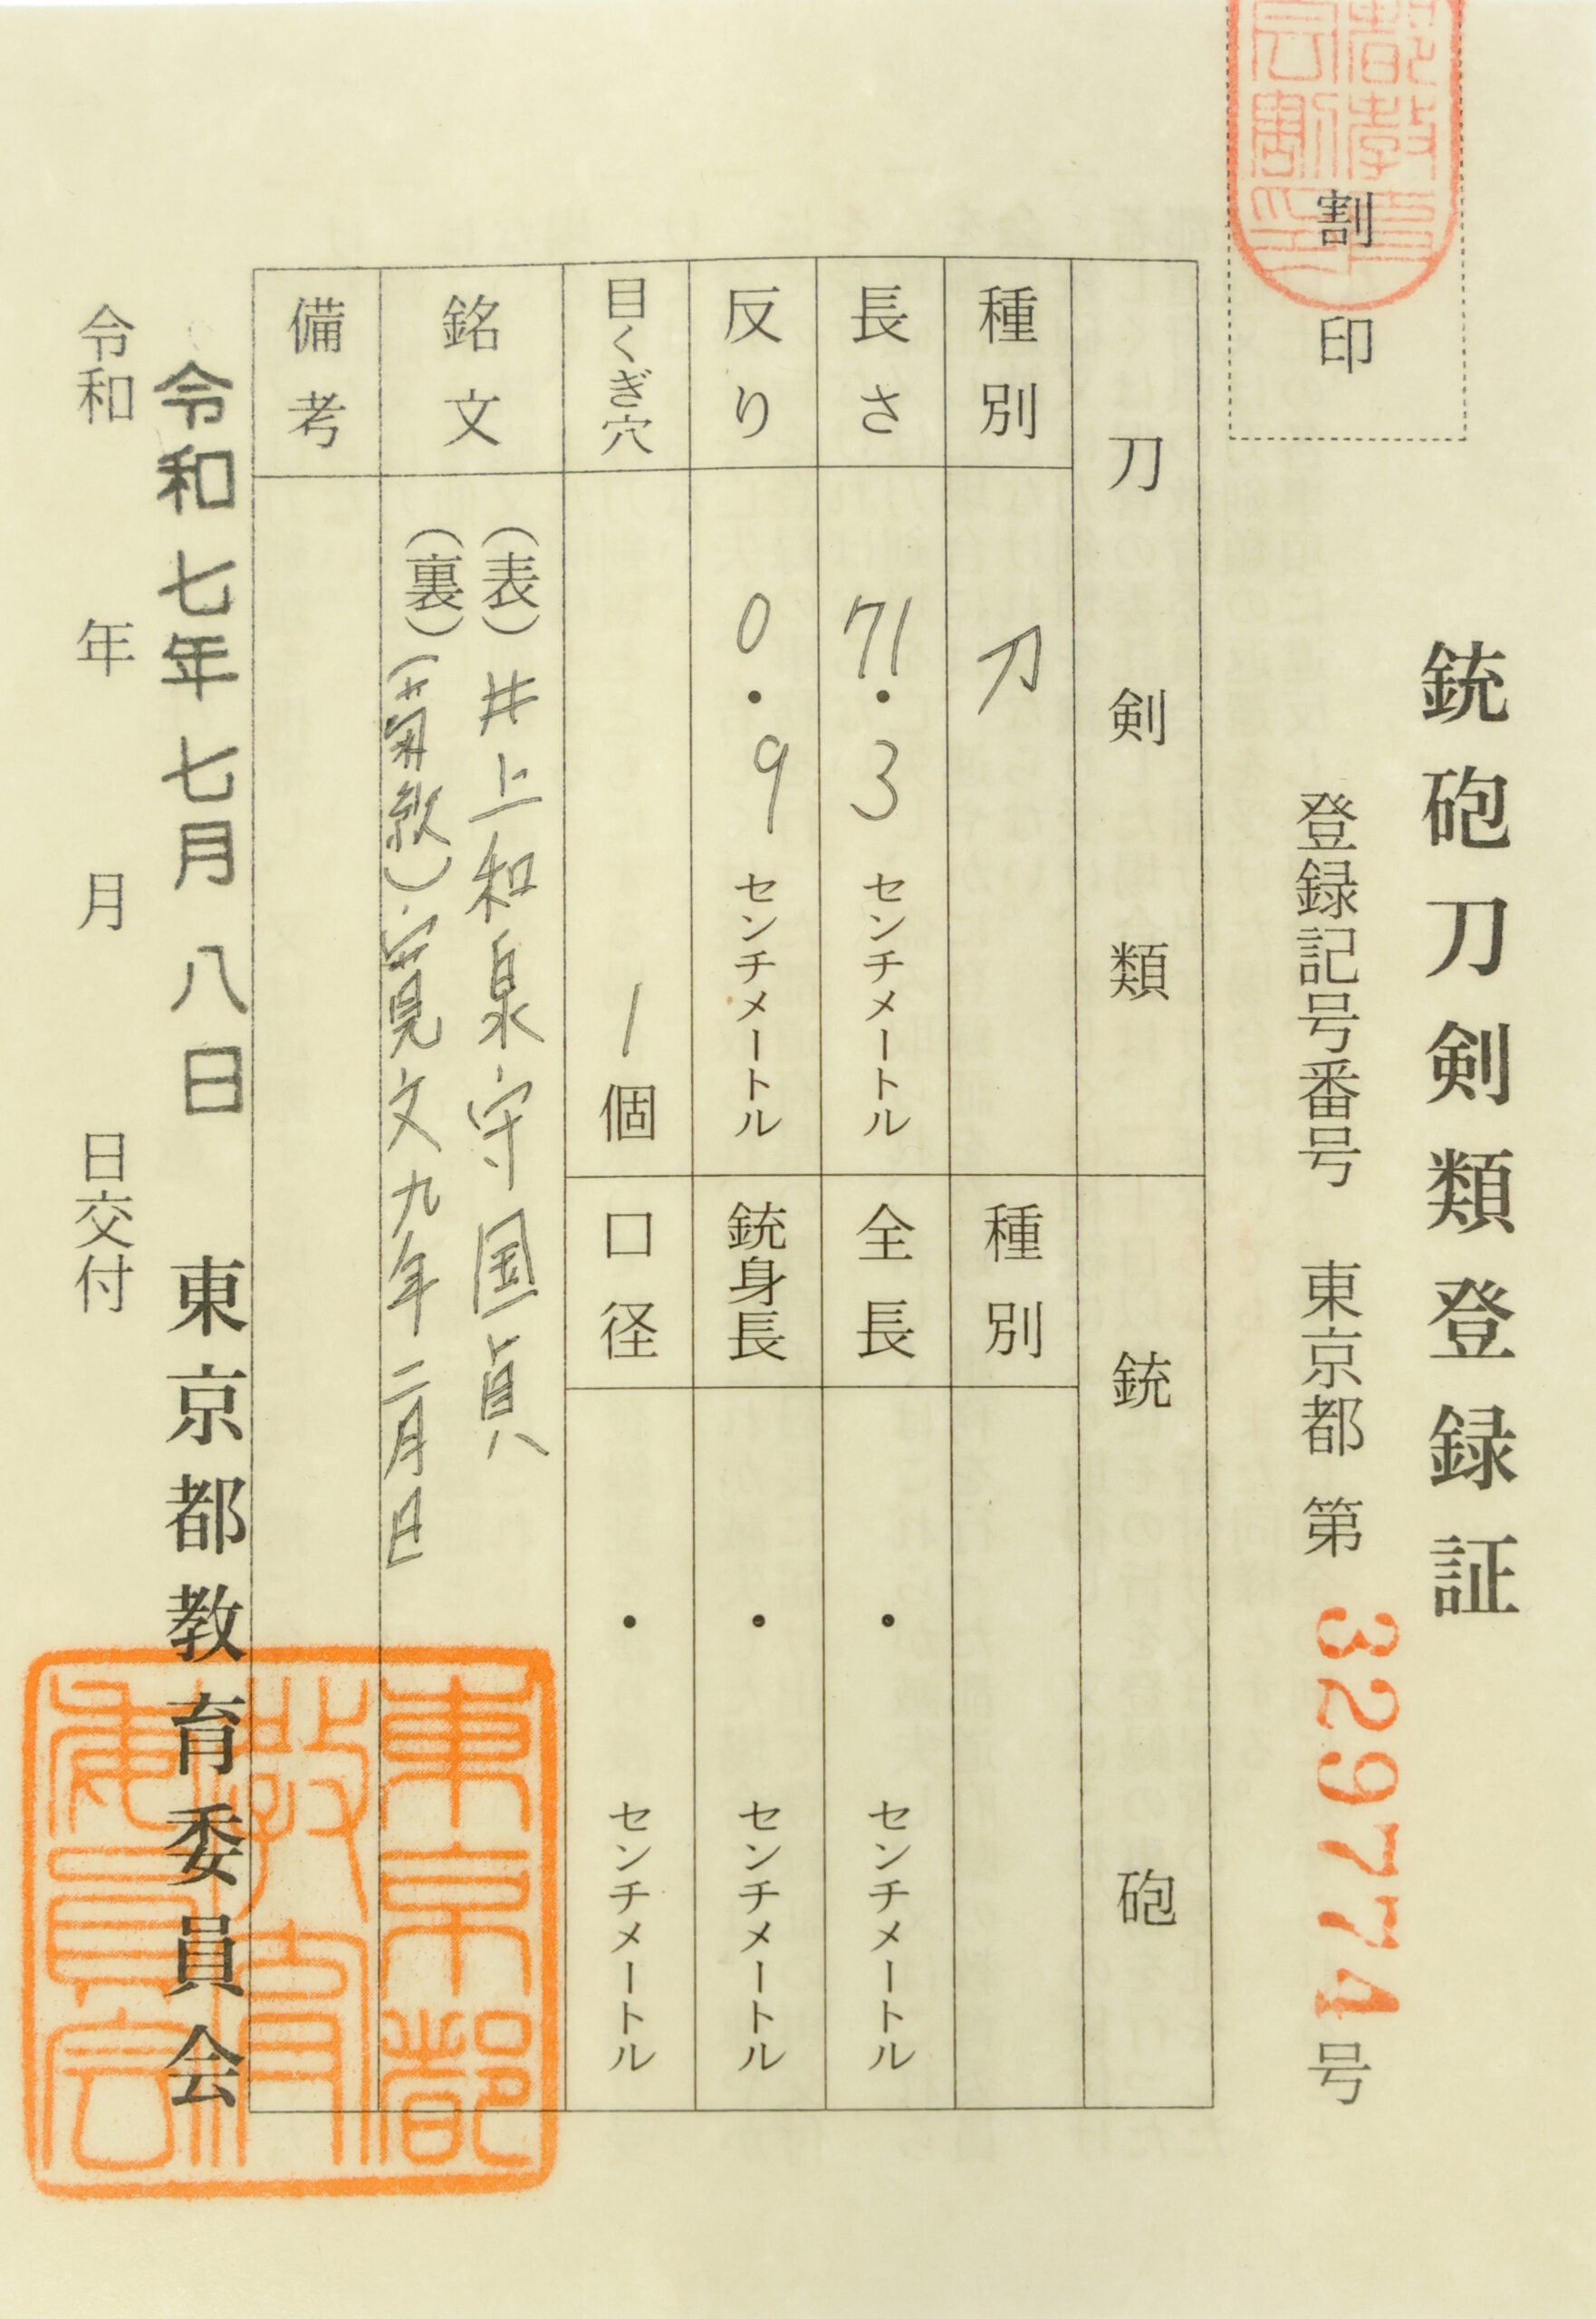 銃砲刀剣類登録証
割印
登録記号番号 東京都 第 329774号
刀剣類
銃砲
種別 刀
種別
長さ 71.3センチメートル
全長 ・ センチメートル
反り 0.9センチメートル
銃身長 ・ センチメートル
目くぎ穴 1個
口径 ・ センチメートル
銘文
(表)井上和泉守国貞
(裏)(菊紋)寛文九年二月日
備考
令和七年七月八日
東京都教育委員会
令和 年 月 日交付
東京都
教育
委員会